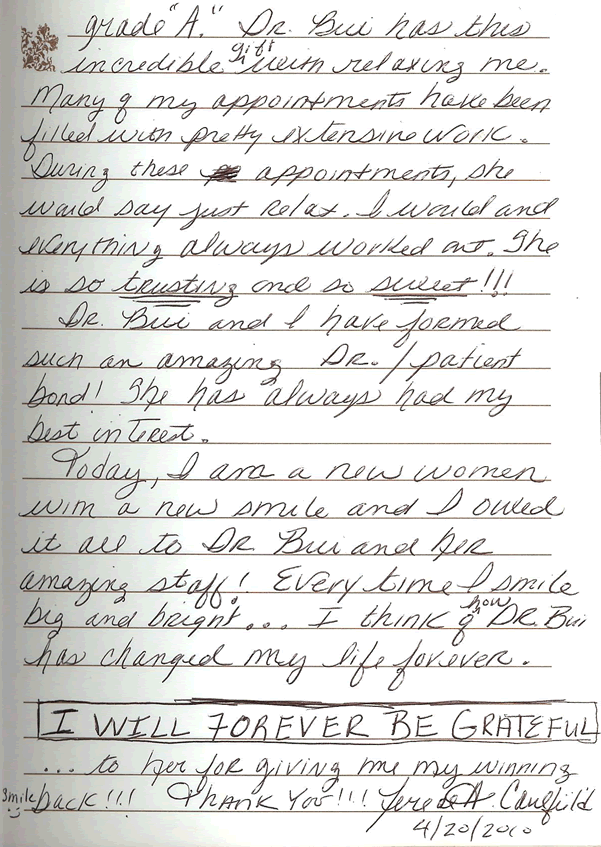 grade "A." Dr. Bui has this
incredible gift with relaxing me.
Many of my appointments have been
filled with pretty extensive work.
During these appointments, she
would say just relax. I would and
everything always worked out. She
is so trusting and so sweet!!!
Dr. Bui and I have formed
such an amazing Dr. / patient
bond! She has always had my
best interest.
Today, I am a new women
with a new smile and I owed
it all to Dr. Bui and her
amazing staff! Every time I smile
big and bright... I think of how Dr. Bui
has changed my life forever.
I WILL FOREVER BE GRATEFUL
... to her for giving me my winning
smile back!!! Thank You!!! A. Caulfield
4/20/2010